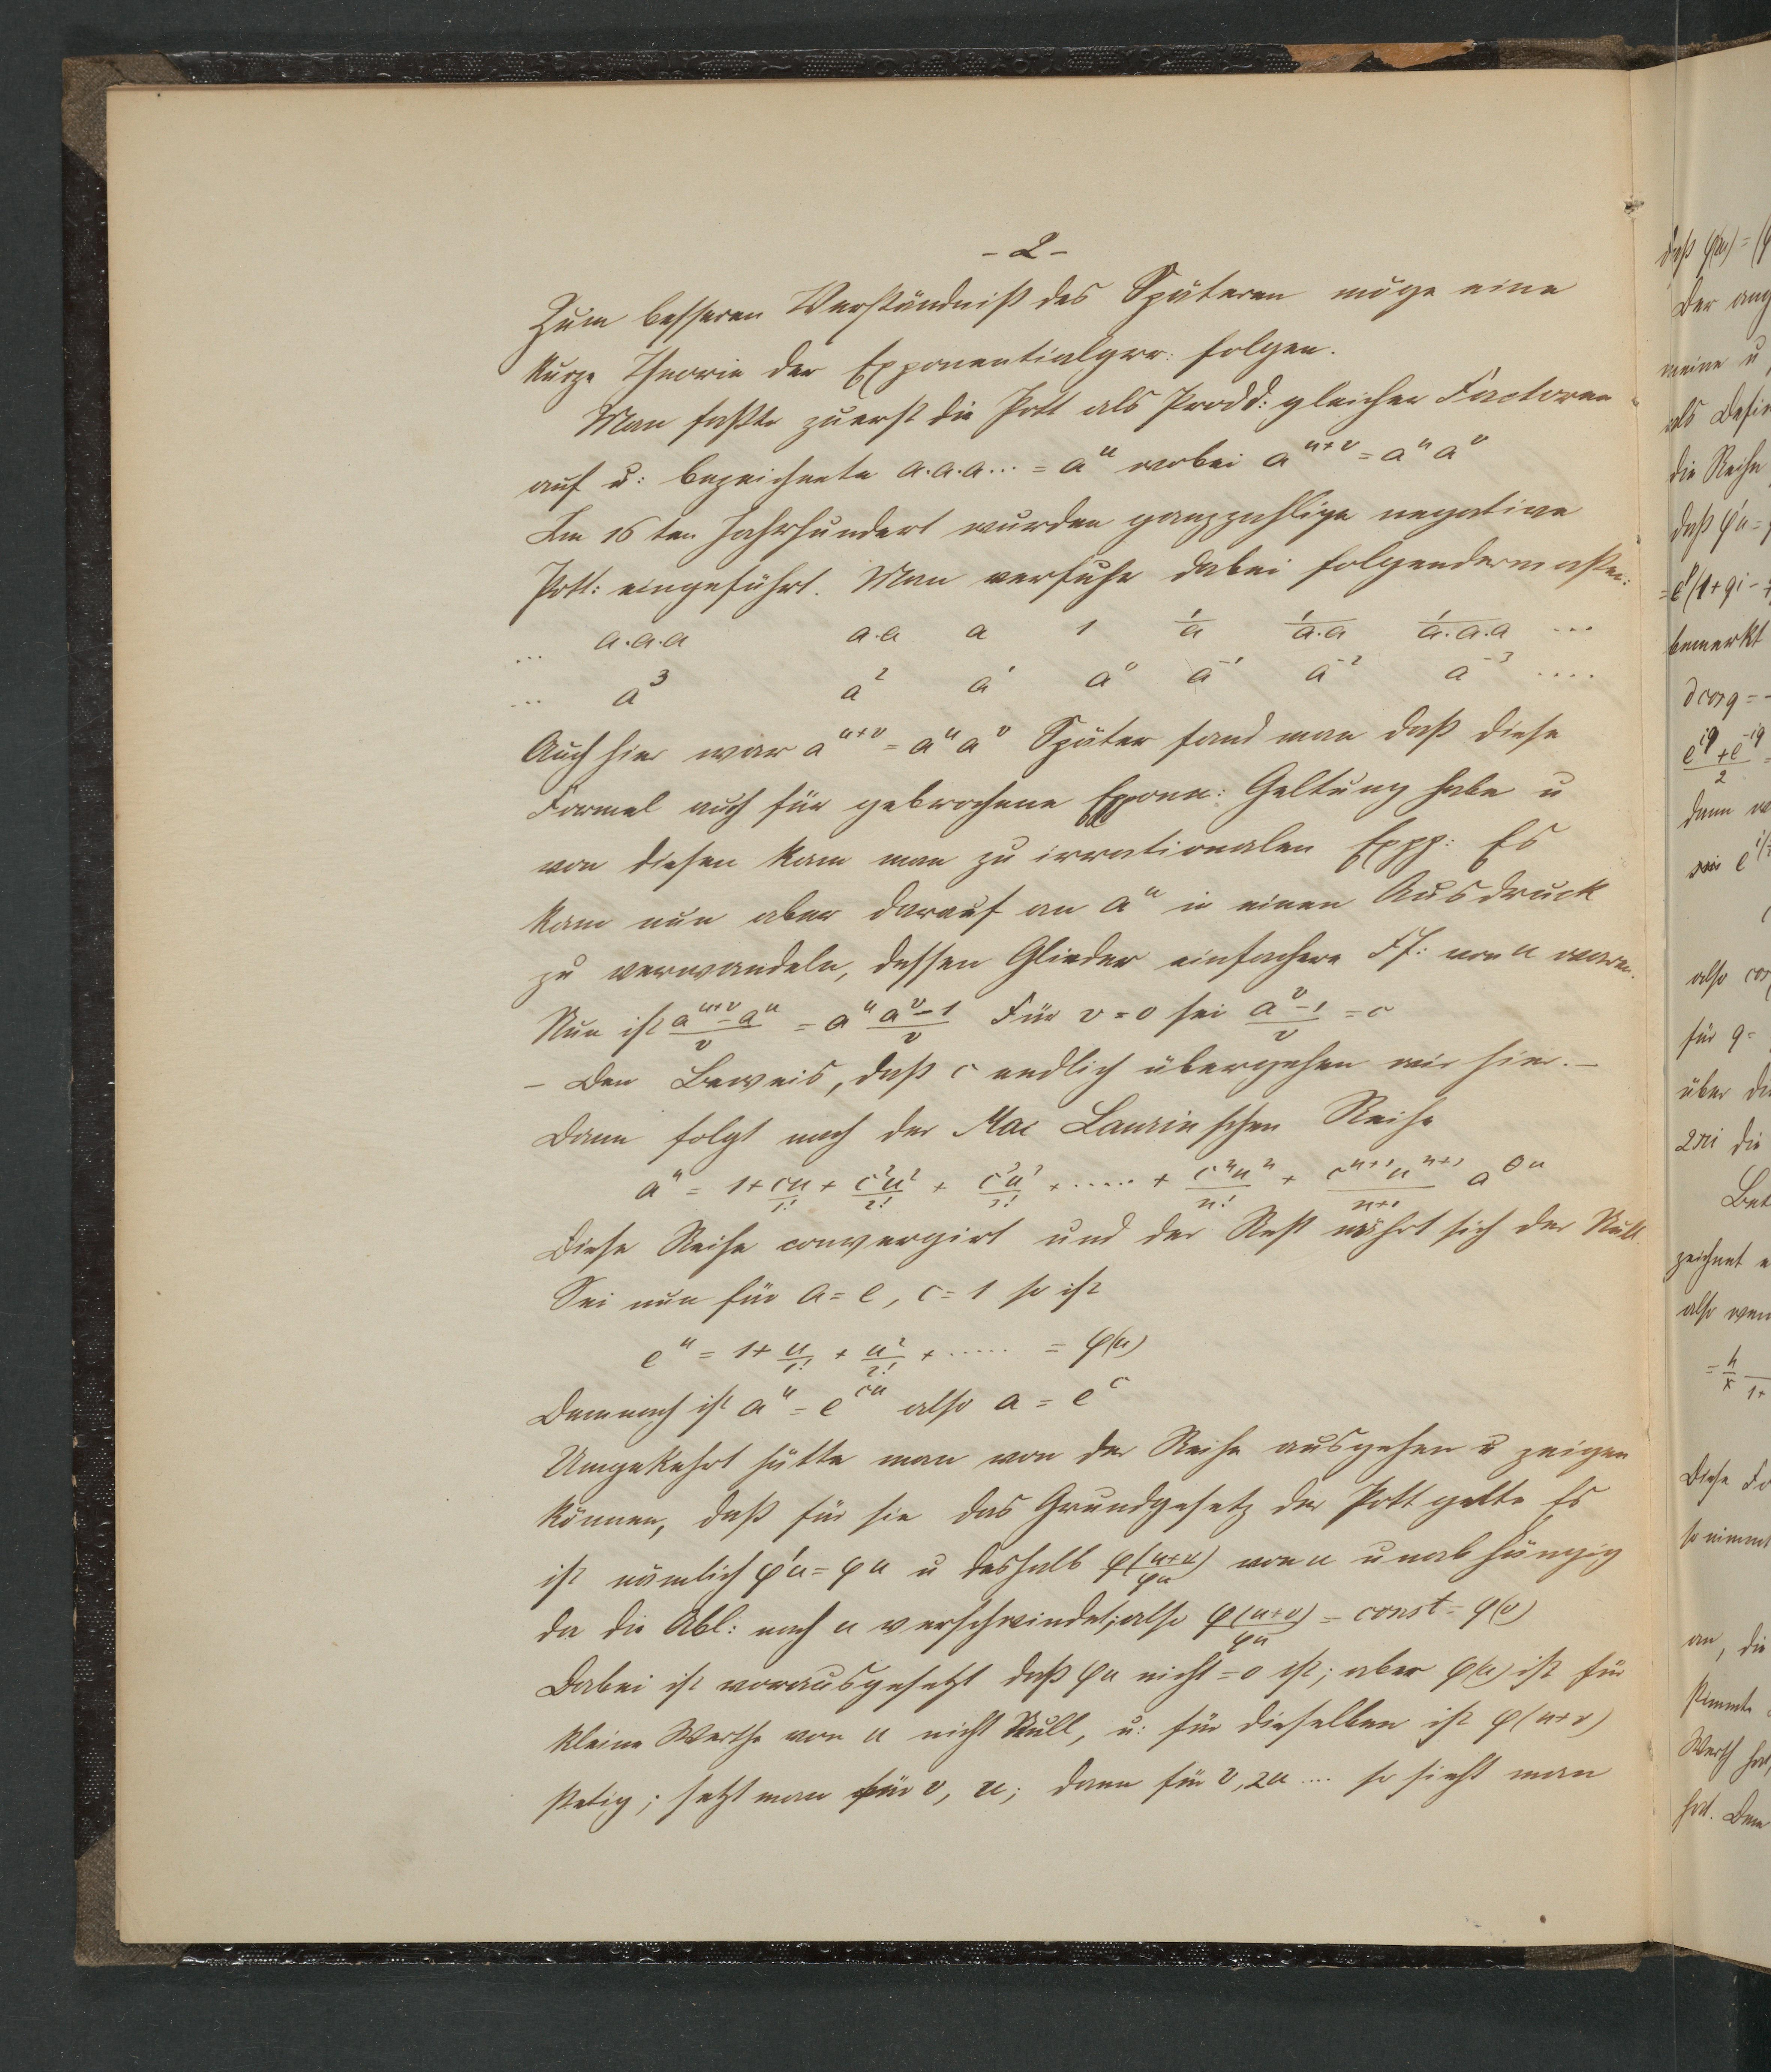 - 2 -
Zum besseren Verständniß des Späteren möge eine
kurze Theorie der Exponentialgrr: folgen.
Man faßte zuerst die Pott als Prodd: gleicher Factoren
auf u: bezeichnete a.a.a... = a^u wobei a^{u+v} = a^u a^v
Im 16 ten Jahrhundert wurden ganzzahlige negative
Pott: eingeführt. Man verfuhr dabei folgendermaßen:
... a.a.a a.a a 1 1/a 1/a.a 1/a.a.a ...
... a^3 a^2 a^1 a^0 a^{-1} a^{-2} a^{-3} ....
Auch hier war a^{u+v} = a^u a^v Später fand man daß diese
Formel auch für gebrochene Exponn: Geltung habe u
von diesen kam man zu irrationalen Expp: Es
kam nun aber darauf an a^u in einen Ausdruck
zu verwandeln, dessen Glieder einfachere Ff: von u waren.
Nun ist (a^{u+v} - a^u)/v = a^u (a^v - 1)/v Für v = 0 sei (a^v - 1)/v = c
- Den Beweis, daß c endlich übergehen wir hier. -
Dann folgt nach der Mac Laurinschen Reihe
a^u = 1 + cu/1! + c^2u^2/2! + c^3u^3/3! + ..... + c^n u^n/n! + c^{n+1} u^{n+1}/n+1 a^{θu}
Diese Reihe convergirt und der Rest nährt sich der Null.
Sei nun für a = e, c = 1 so ist
e^u = 1 + u/1! + u^2/2! + ..... = φ(u)
Demnach ist a^u = e^{cu} also a = e^c
Umgekehrt hätte man von der Reihe ausgehen u zeigen
können, daß für sie das Grundgesetz der Pott gelte Es
ist nämlich φ'u = φu u deshalb φ(u+v)/φu von u unabhängig
da die Abl: nach u verschwindet; also φ(u+v)/φu = const = φ(v)
Dabei ist vorausgesetzt daß φu nicht = 0 ist; aber φ(u) ist für
kleine Werthe von u nicht Null, u: für dieselben ist φ(u+v)
stetig; setzt man für v, u; dann für v, 2u .... so sieht man